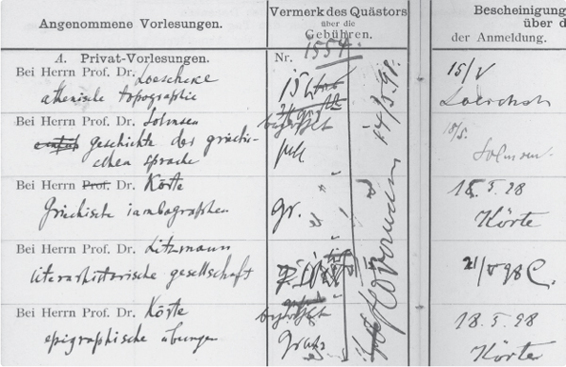 Angenommene Vorlesungen.
Vermerk des Quästors
über die
Gebühren.
Bescheinigung
über d
der Anmeldung.
A. Privat-Vorlesungen.
Nr. 1554.
Bei Herrn Prof. Dr. Loeschcke
athenische topographie
15/V
Loeschck
Bei Herrn Prof. Dr. Solmsen
geschichte der griechi-
schen sprache
Solmsen.
Bei Herrn Prof. Dr. Körte
Griechische iambographen
gr.
18.5.98
Körte
Bei Herrn Prof. Dr. Litzmann
literarhistorische gesellschaft
21/V 98 L.
Bei Herrn Prof. Dr. Körte
epigraphische übungen
gratis
18.5.98
Körte